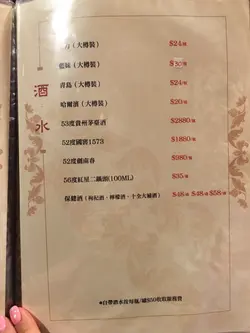 酒水
(大樽裝) $24/樽
藍妹(大樽裝) $30/樽
青島(大樽裝) $24/樽
哈爾濱(大樽裝) $20/樽
53度貴州茅臺酒 $2880/樽
52度國窖1573 $1880/樽
52度劍南春 $980/樽
56度紅星二鍋頭(100ML) $35/樽
保健酒(枸杞酒、檸檬酒、十全大補酒) $48/樽 $48/樽 $58/樽
*自帶酒水按每瓶/罐$50收取服務費